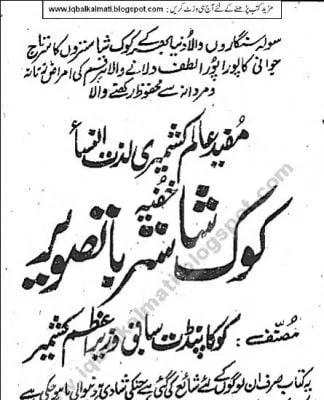 مزید کتب پڑھنے کے لئے آج ہی وزٹ کریں : www.iqbalkalmati.blogspot.com
سولہ سنگاروں والا دُنیا بھر کے کوک شاستروں کا سرتاج
جوانی کا پورا پُورا لُطف دِلانے والا ہر قِسم کی امراض زنانہ
و مردانہ سے محفوظ رکھنے والا
مُفید عالم کشمیری لذت النساء
خفیہ
کوک شاستر باتصویر
مُصنّف :۔ کوکا پنڈت سابق وزیراعظم کشمیر
یہ کتاب صرف ان لوگوں کے لئے شائع کی گئی ہے جنکی شادی ہونیوالی یا ہو چکی ہے
iqbalkalmati.blogspot.com